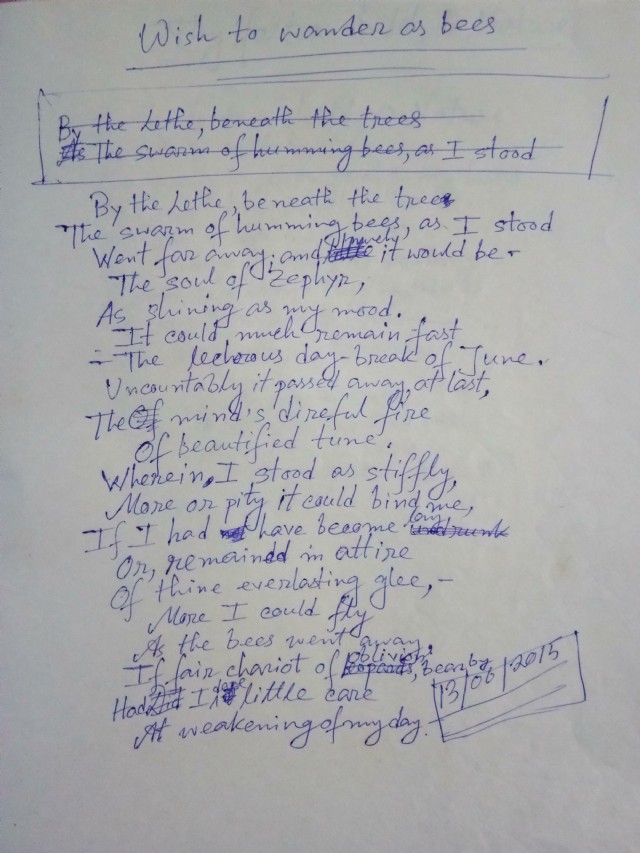 Wish to wander as bees
By the Lethe, beneath the trees
As The swarm of humming bees, as I stood
By the Lethe, beneath the trees
The swarm of humming bees, as I stood
Went far away; and it would be
The soul of Zephyr,
As shining as my mood.
It could much remain fast
- The lecherous day-break of June.
Uncountably it passed away, at last,
The mind's direful fire
Of beautified tune.
Wherein, I stood as stiffly,
More or pity it could bind me,
If I had have become
Or, remained in attire
Of thine everlasting glee,-
More I could fly
As the bees went away
If fair chariot of oblivion,
Had I little care
At weakening of my day.
13/06/2015